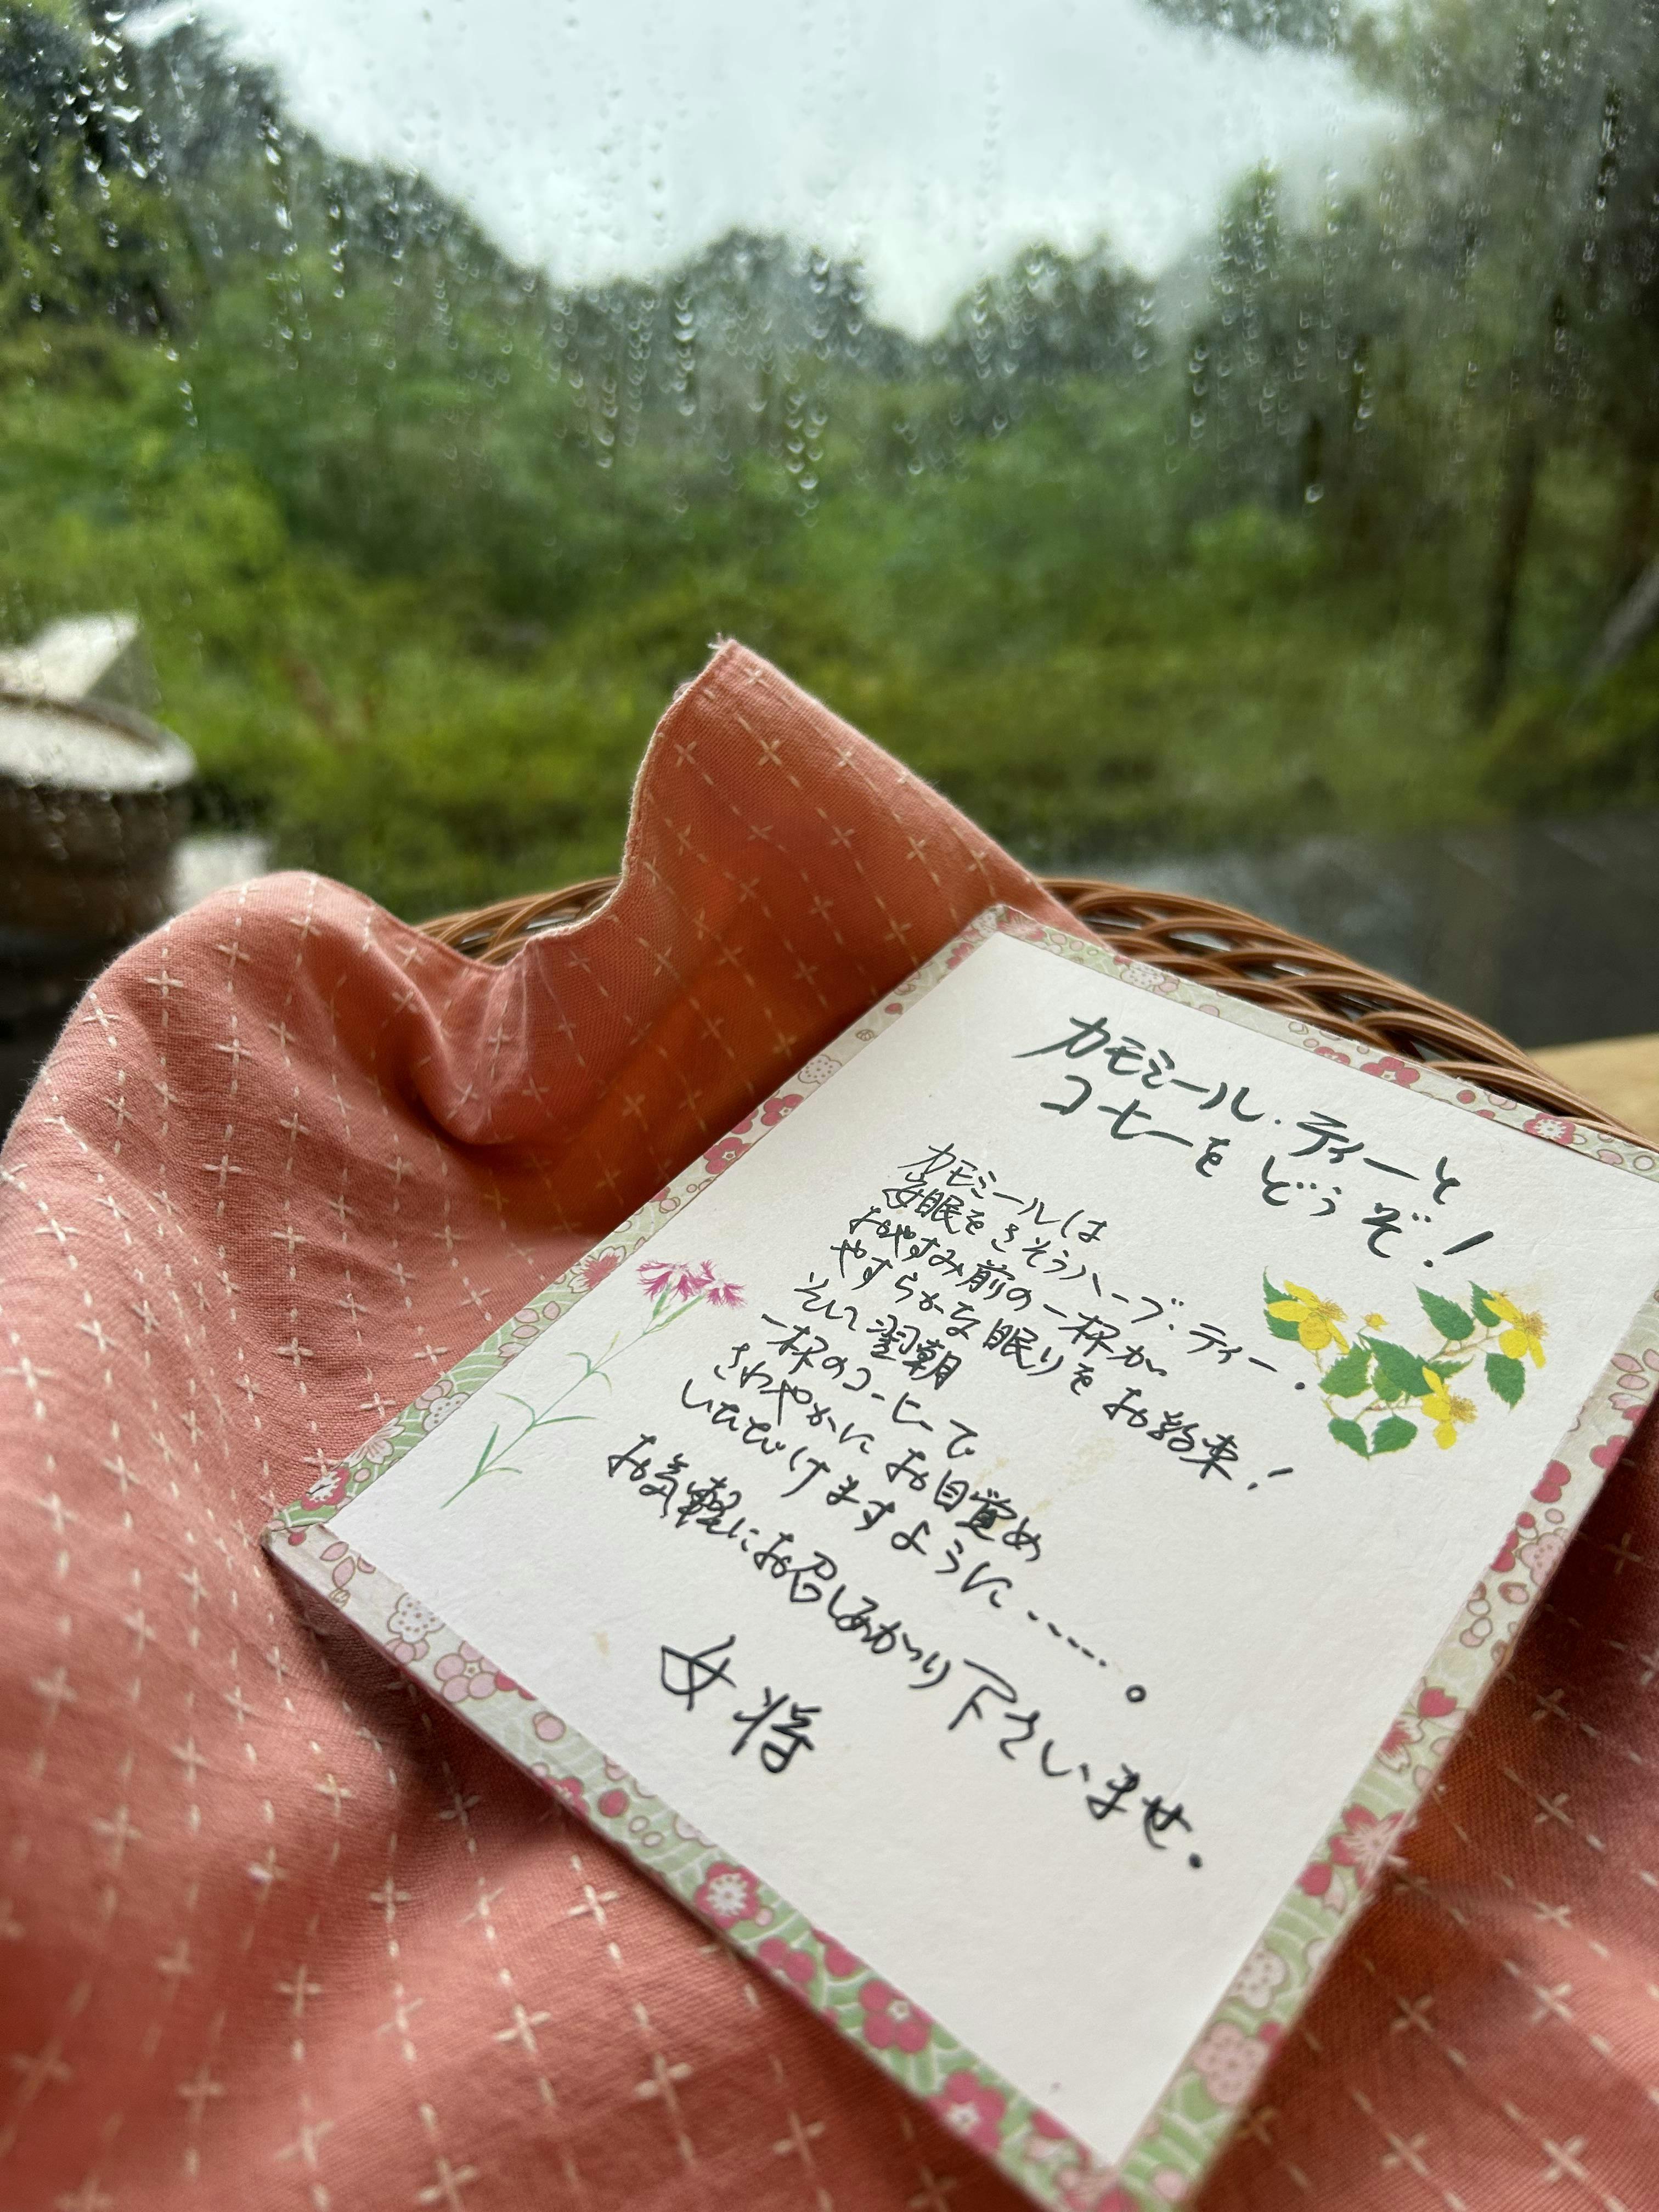 カモミール・ティーと
コーヒーを どうぞ!
カモミールは
安眠をさそうハーブ・ティー.
おやすみ前の一杯が
やすらかな眠りを お約束!
そして翌朝
一杯のコーヒーで
さわやかに お目覚め
いただけますように……。
お気軽にお召しあがり下さいませ.
女将